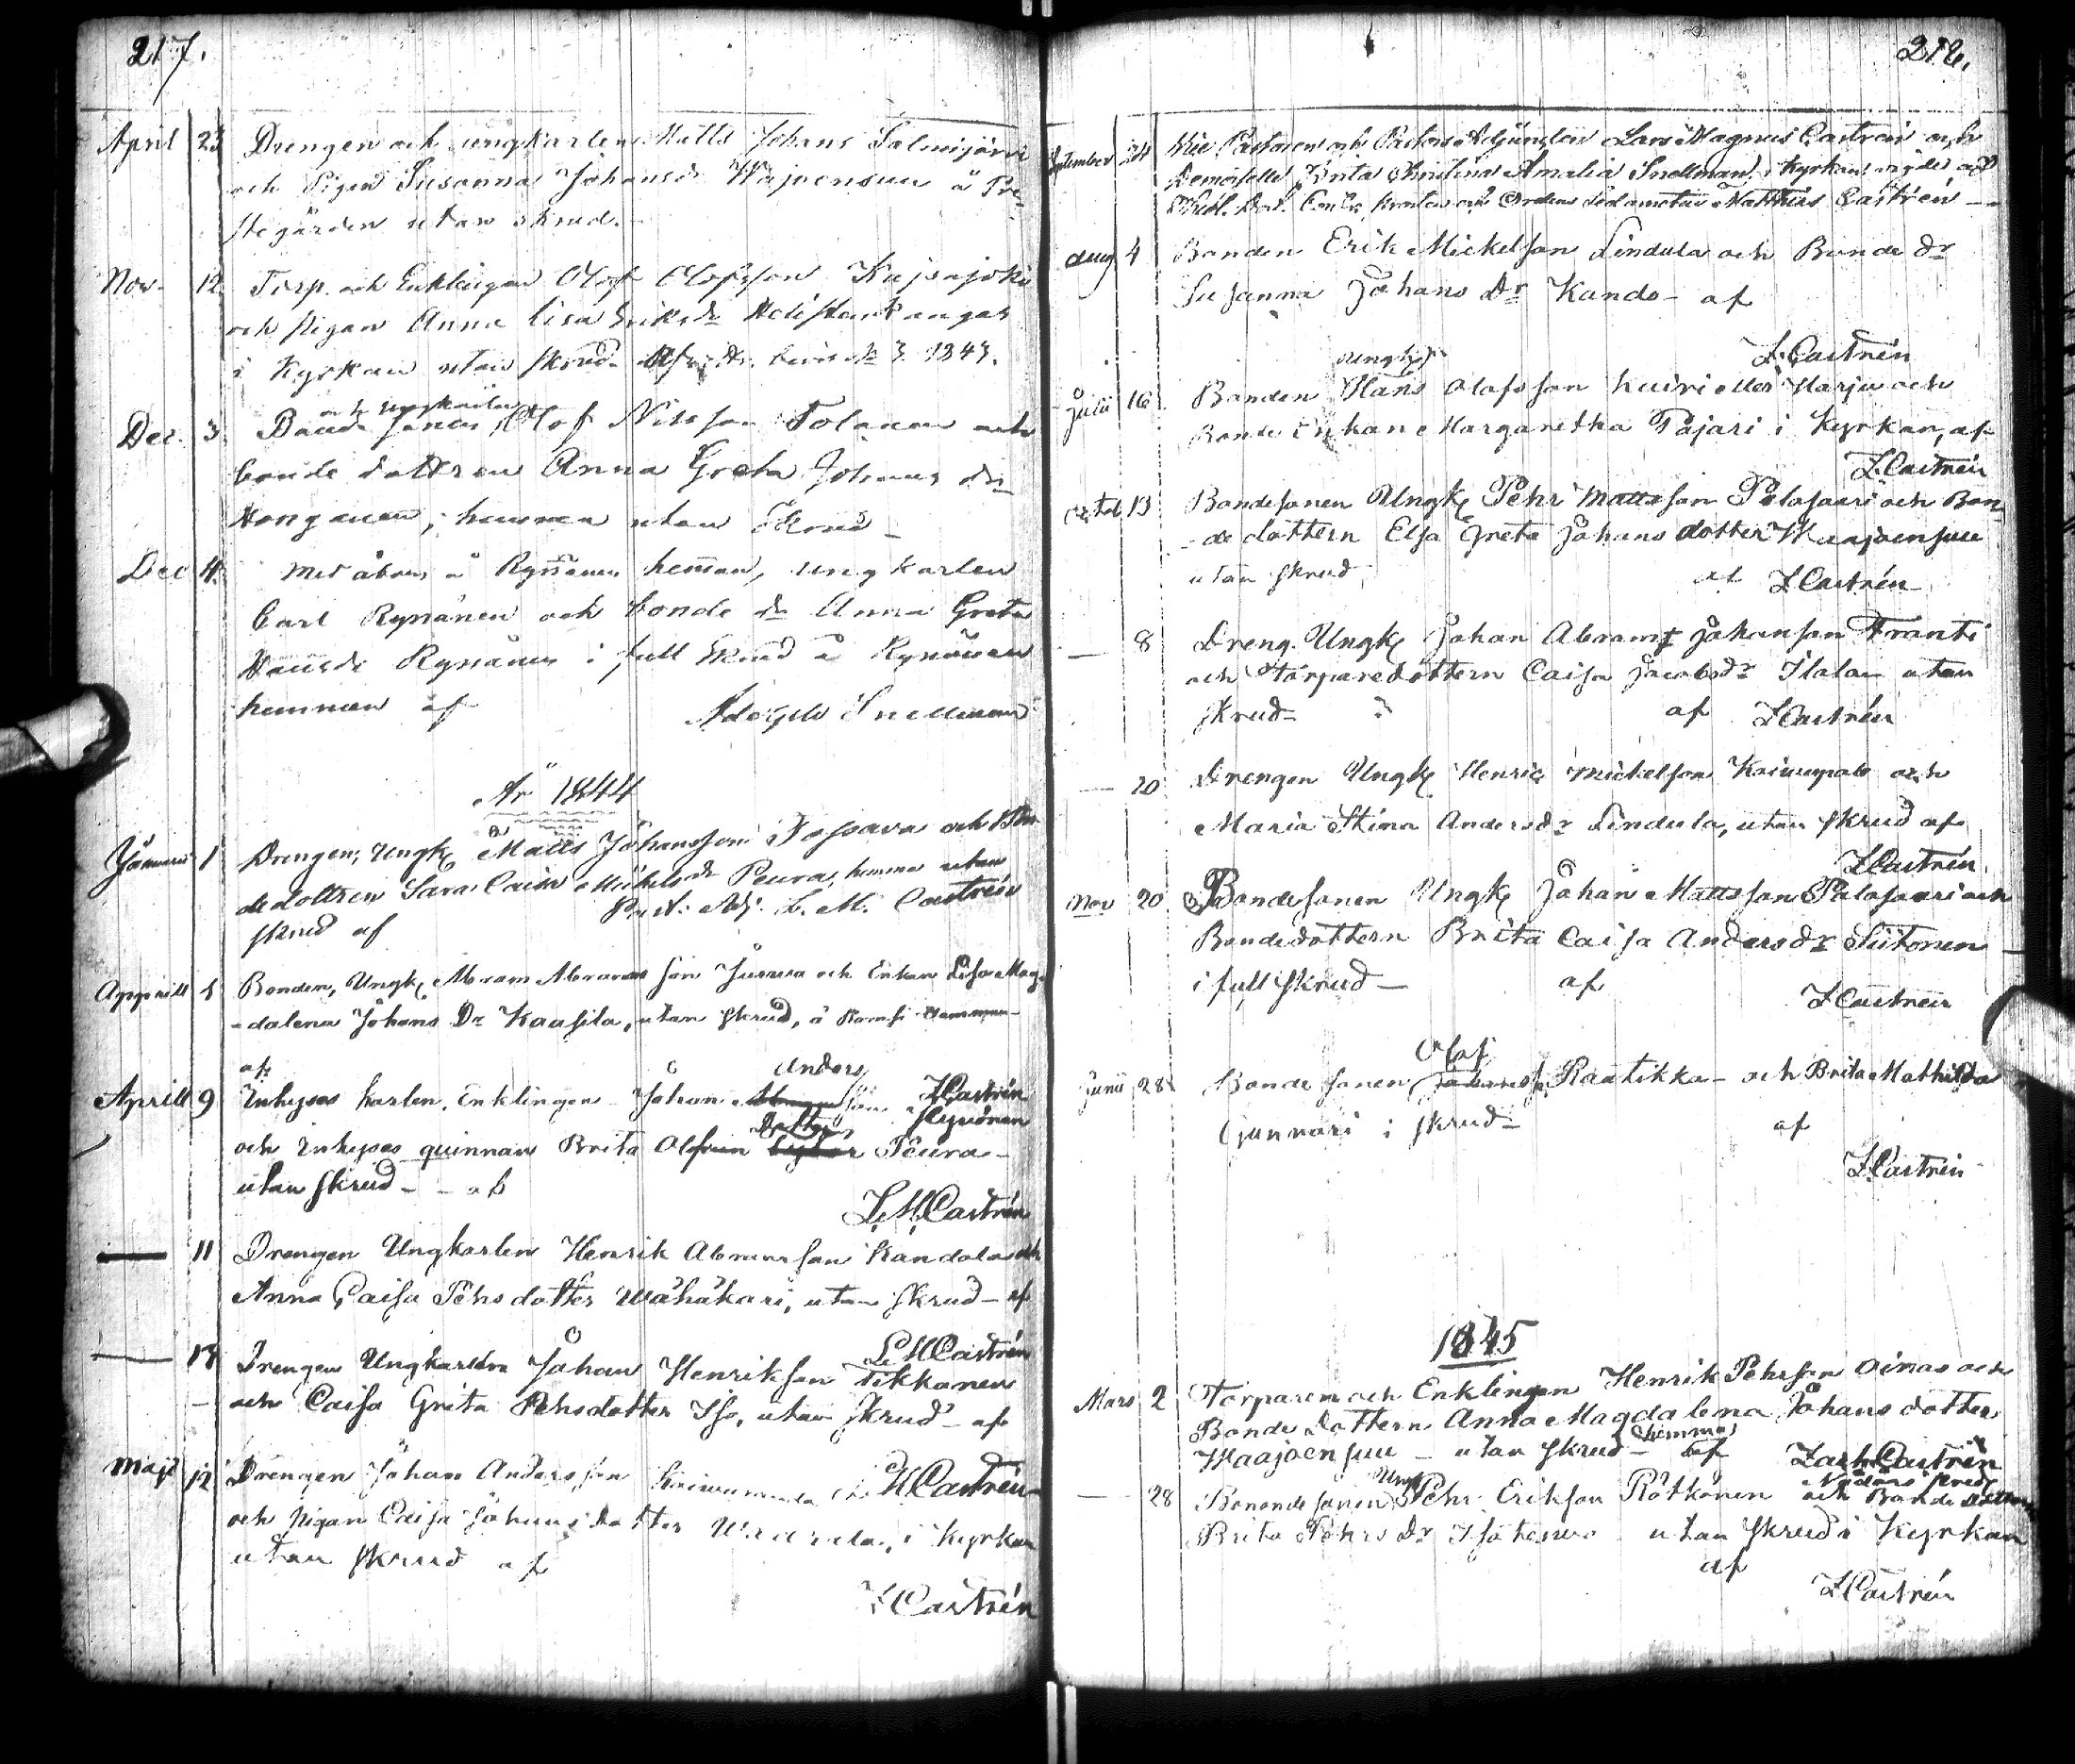 217.
April 23 Drengen och ungkarlen Matts Johans Salmijärvi
och Pigan Susanna Johansdr Wajoensuu å Pre-
stegården utan skrud.
Nov. 12 Torp. och Enklingen Olof Olofsson
och pigan Anna Lisa Eriksdr
i Kyrkan utan skrud 1843.
och ungkarlen
Dec. 3. Bonde sonen Olof Nilsson Tolonen och
bonde dottren Anna Greta Johans dr
hemma utan Skrud
Dec 4. Medåboen å Rynänen hemman, ungkarlen
Carl Rynänen och bonde dr Anna Greta
Hansdr Rynänen i full skrud å Rynänen
hemman af Adolph Snellman
År 1844
1 Drengen, Ungk Matts Johansson och Bon-
dedottren Sara Caisa Mickelsdr Peura, hemma utan
skrud af Past. Adj. L. M. Castrén
Apprill 5 Bonden, Ungk Abram Abramsson och Enkan Lisa Mag-
-dalena Johans Dr Kaasila, utan skrud, å
af
Anders
LCastrén
Aprill 9 Inhyses karlen, Enklingen Johan son Hyvönen
Dotter
och Inhyses quinnan Brita Peura
utan skrud - - af
L.M.Castrén
11 Drengen Ungkarlen Henrik Abramsson Kandola och
Anna Caisa Pehrsdotter Wähäkari, utan skrud - af
LMCastrén
13 Drengen Ungkarlen Johan Henriksson Tikkanen
och Caisa Greta Pehrsdotter Iso, utan skrud - af
LMCastrén
Maji 12 Drengen Johan Andersson
och pigan Caisa Johans dotter i kyrkan
utan skrud af
LCastrén
218.
September 24 Pastoren och Pastors Adjuncten Lars Magnus Castrén och
Demoiselle Brita Christina Amalia Snellman, i kyrkan vigde af
Matthias Castrén
Aug 4 Bonden Erik Mickelsson Lindula och Bonde Dr
Susanna Johans Dr Kando - af
L.Castrén
ungk
Julii 16 Bonden Hans Olofsson Kuiri eller Harju och
Bonde Enkan Margaretha Pajari i Kyrkan, af
L.Castrén
13 Bondesonen Ungk Pehr Mattsson Palosaari och Bon-
-de dottern Elsa Greta Johans dotter Waajoensuu
utan skrud af LCastrén
8 Dreng. Ungk Johan Abram Johansson Frantsi
och Torparedottern Caisa Jacobsdr Ilola utan
skrud - af LCastrén
20 Drengen Ungk Henric Mickelsson och
Maria Stina Andersdr Lindula, utan skrud af
LCastrén
Nov 20 Bondesonen Ungk Johan Mattsson Palosaari och
Bondedottern Brita Caisa Andersdr Siitonen
i full skrud - af
LCastrén
Olof
Junii 28 Bonde sonen Raatikka - och Brita Mathilda
Gunnari i skrud - af
LCastrén
1845
Mars 2 Torparen och Enklingen Henrik Pehrsson Oinas och
Bonde dottern Anna Magdalena Johans dotter
hemma
Waajoensuu - utan skrud - af Castrén
Ung
28 Bononde sonen Pehr Eriksson Rötkönen och Bonde dottern
Brita Pehrs Dr utan skrud i Kyrkan
af
LCastrén